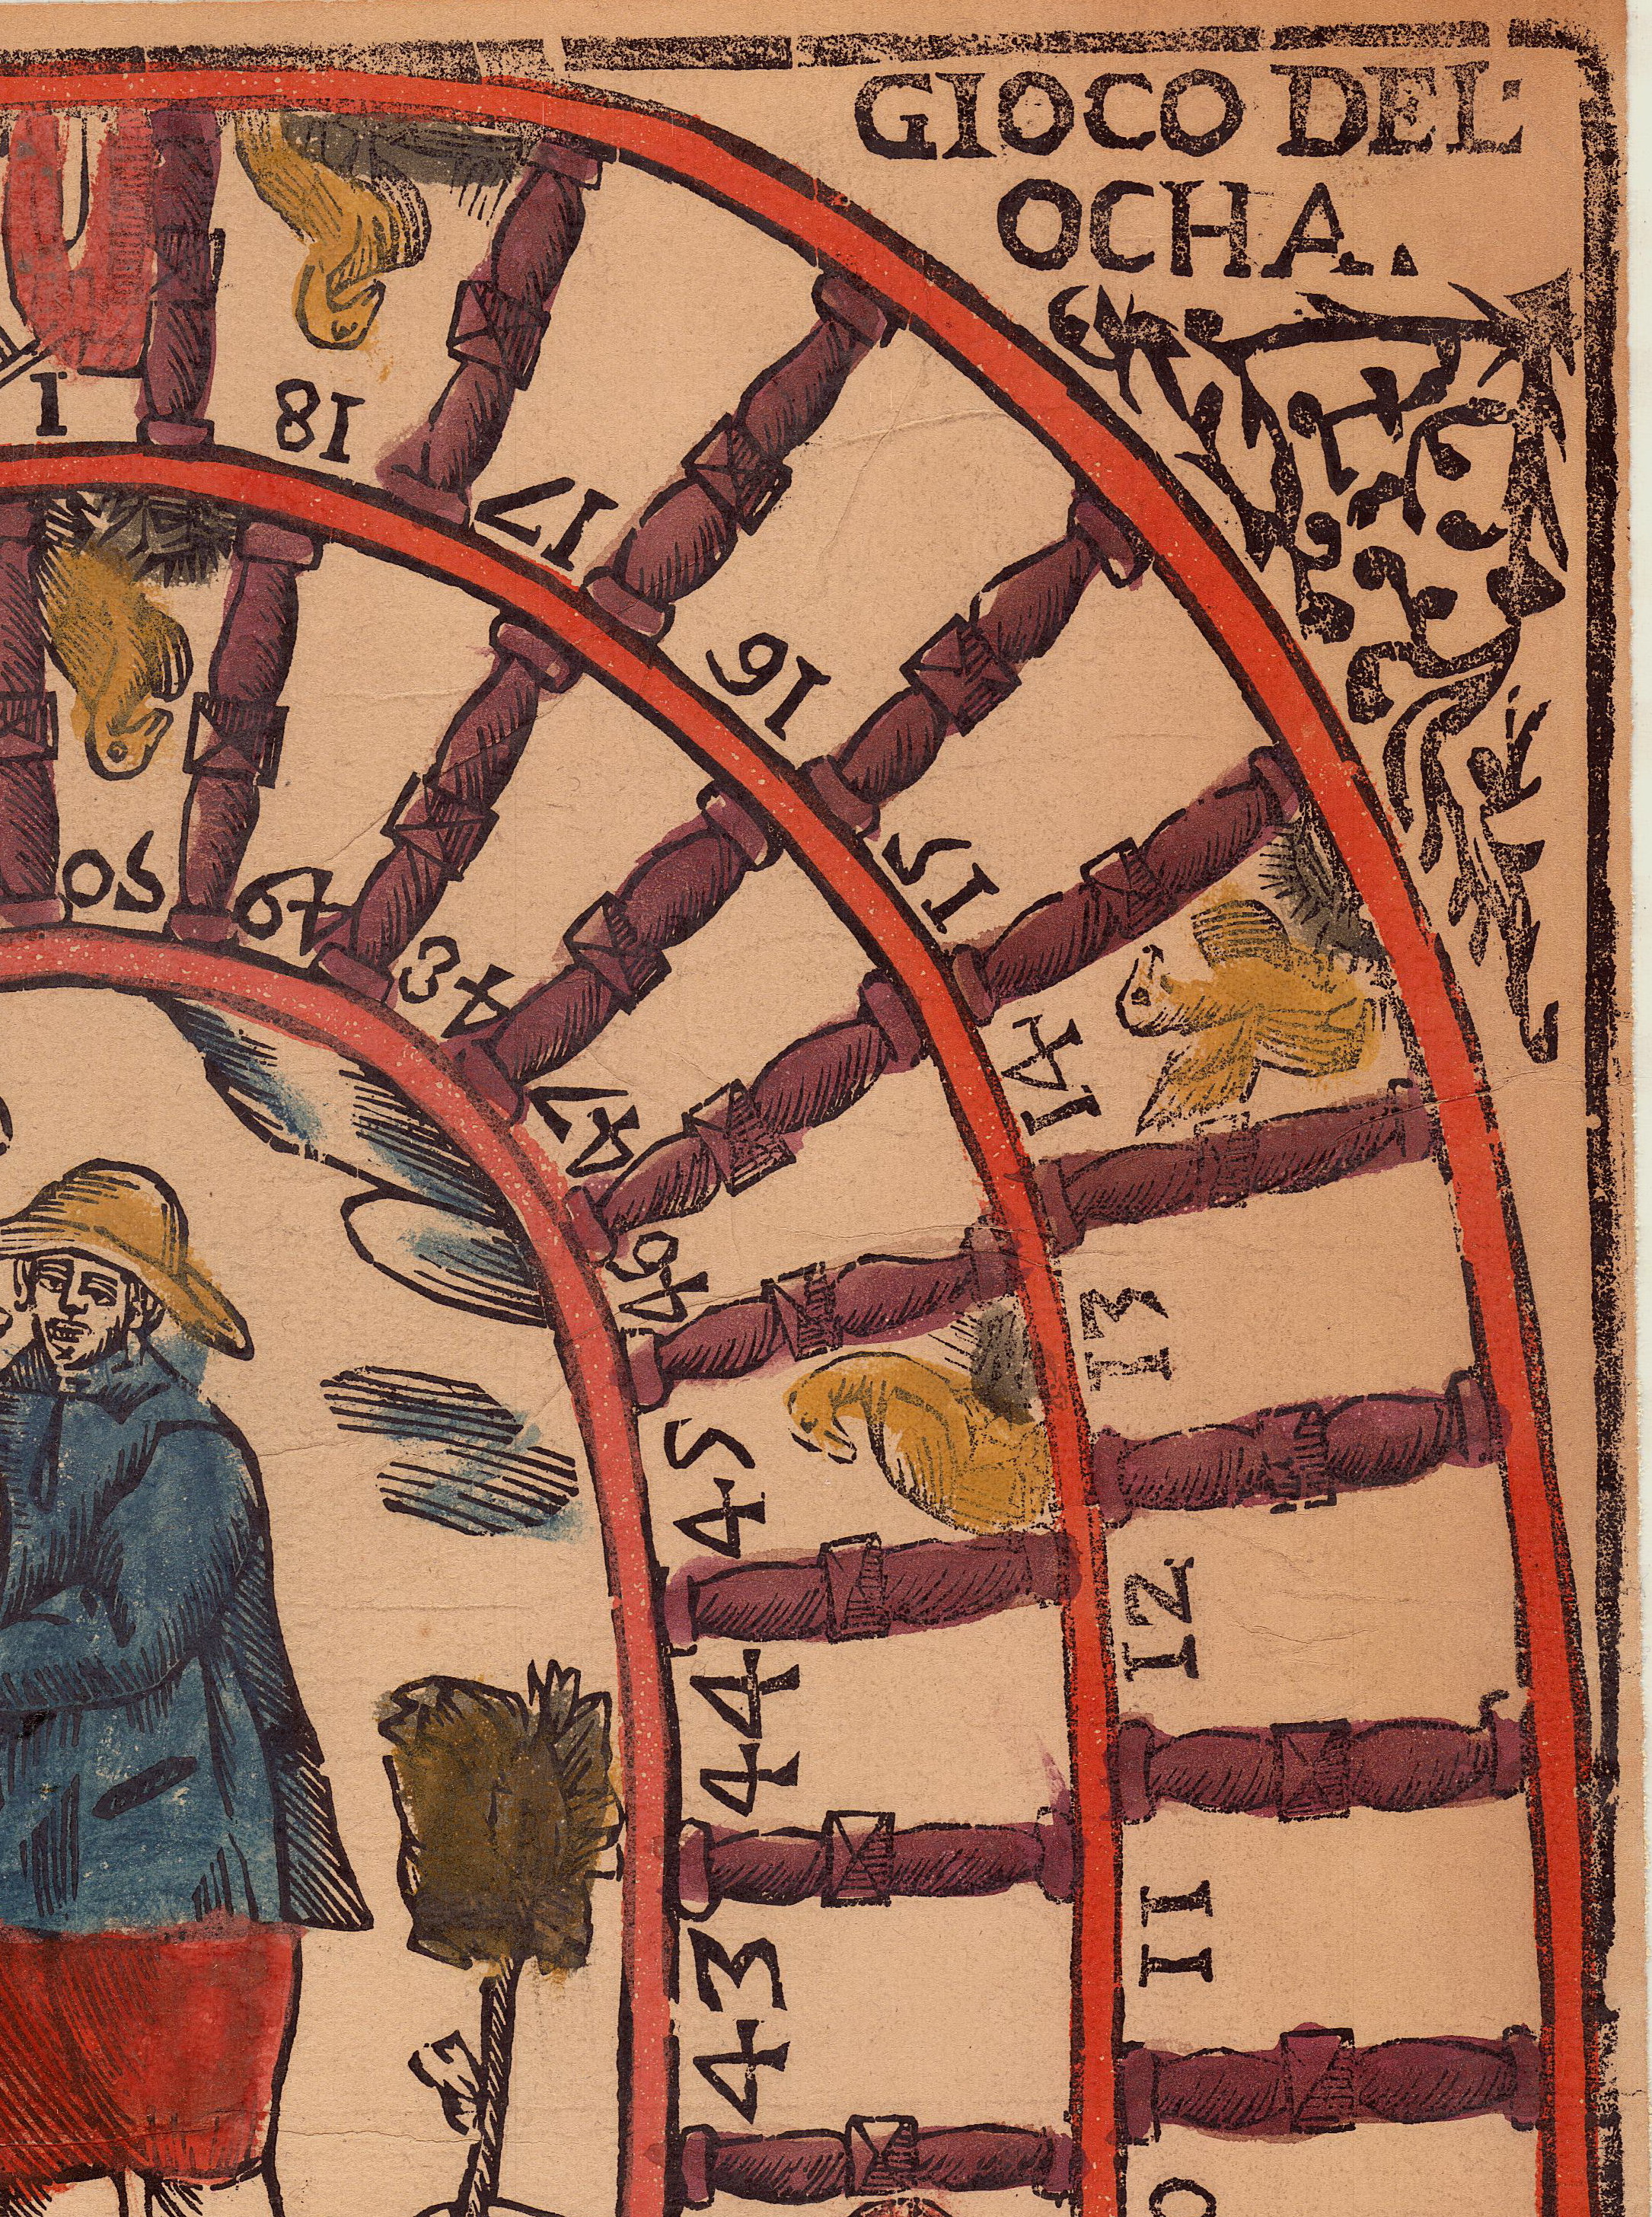 GIOCO DEL'
OCHA..
18
17
16
15
14
13
12
11
50
49
48
47
46
45
44
43